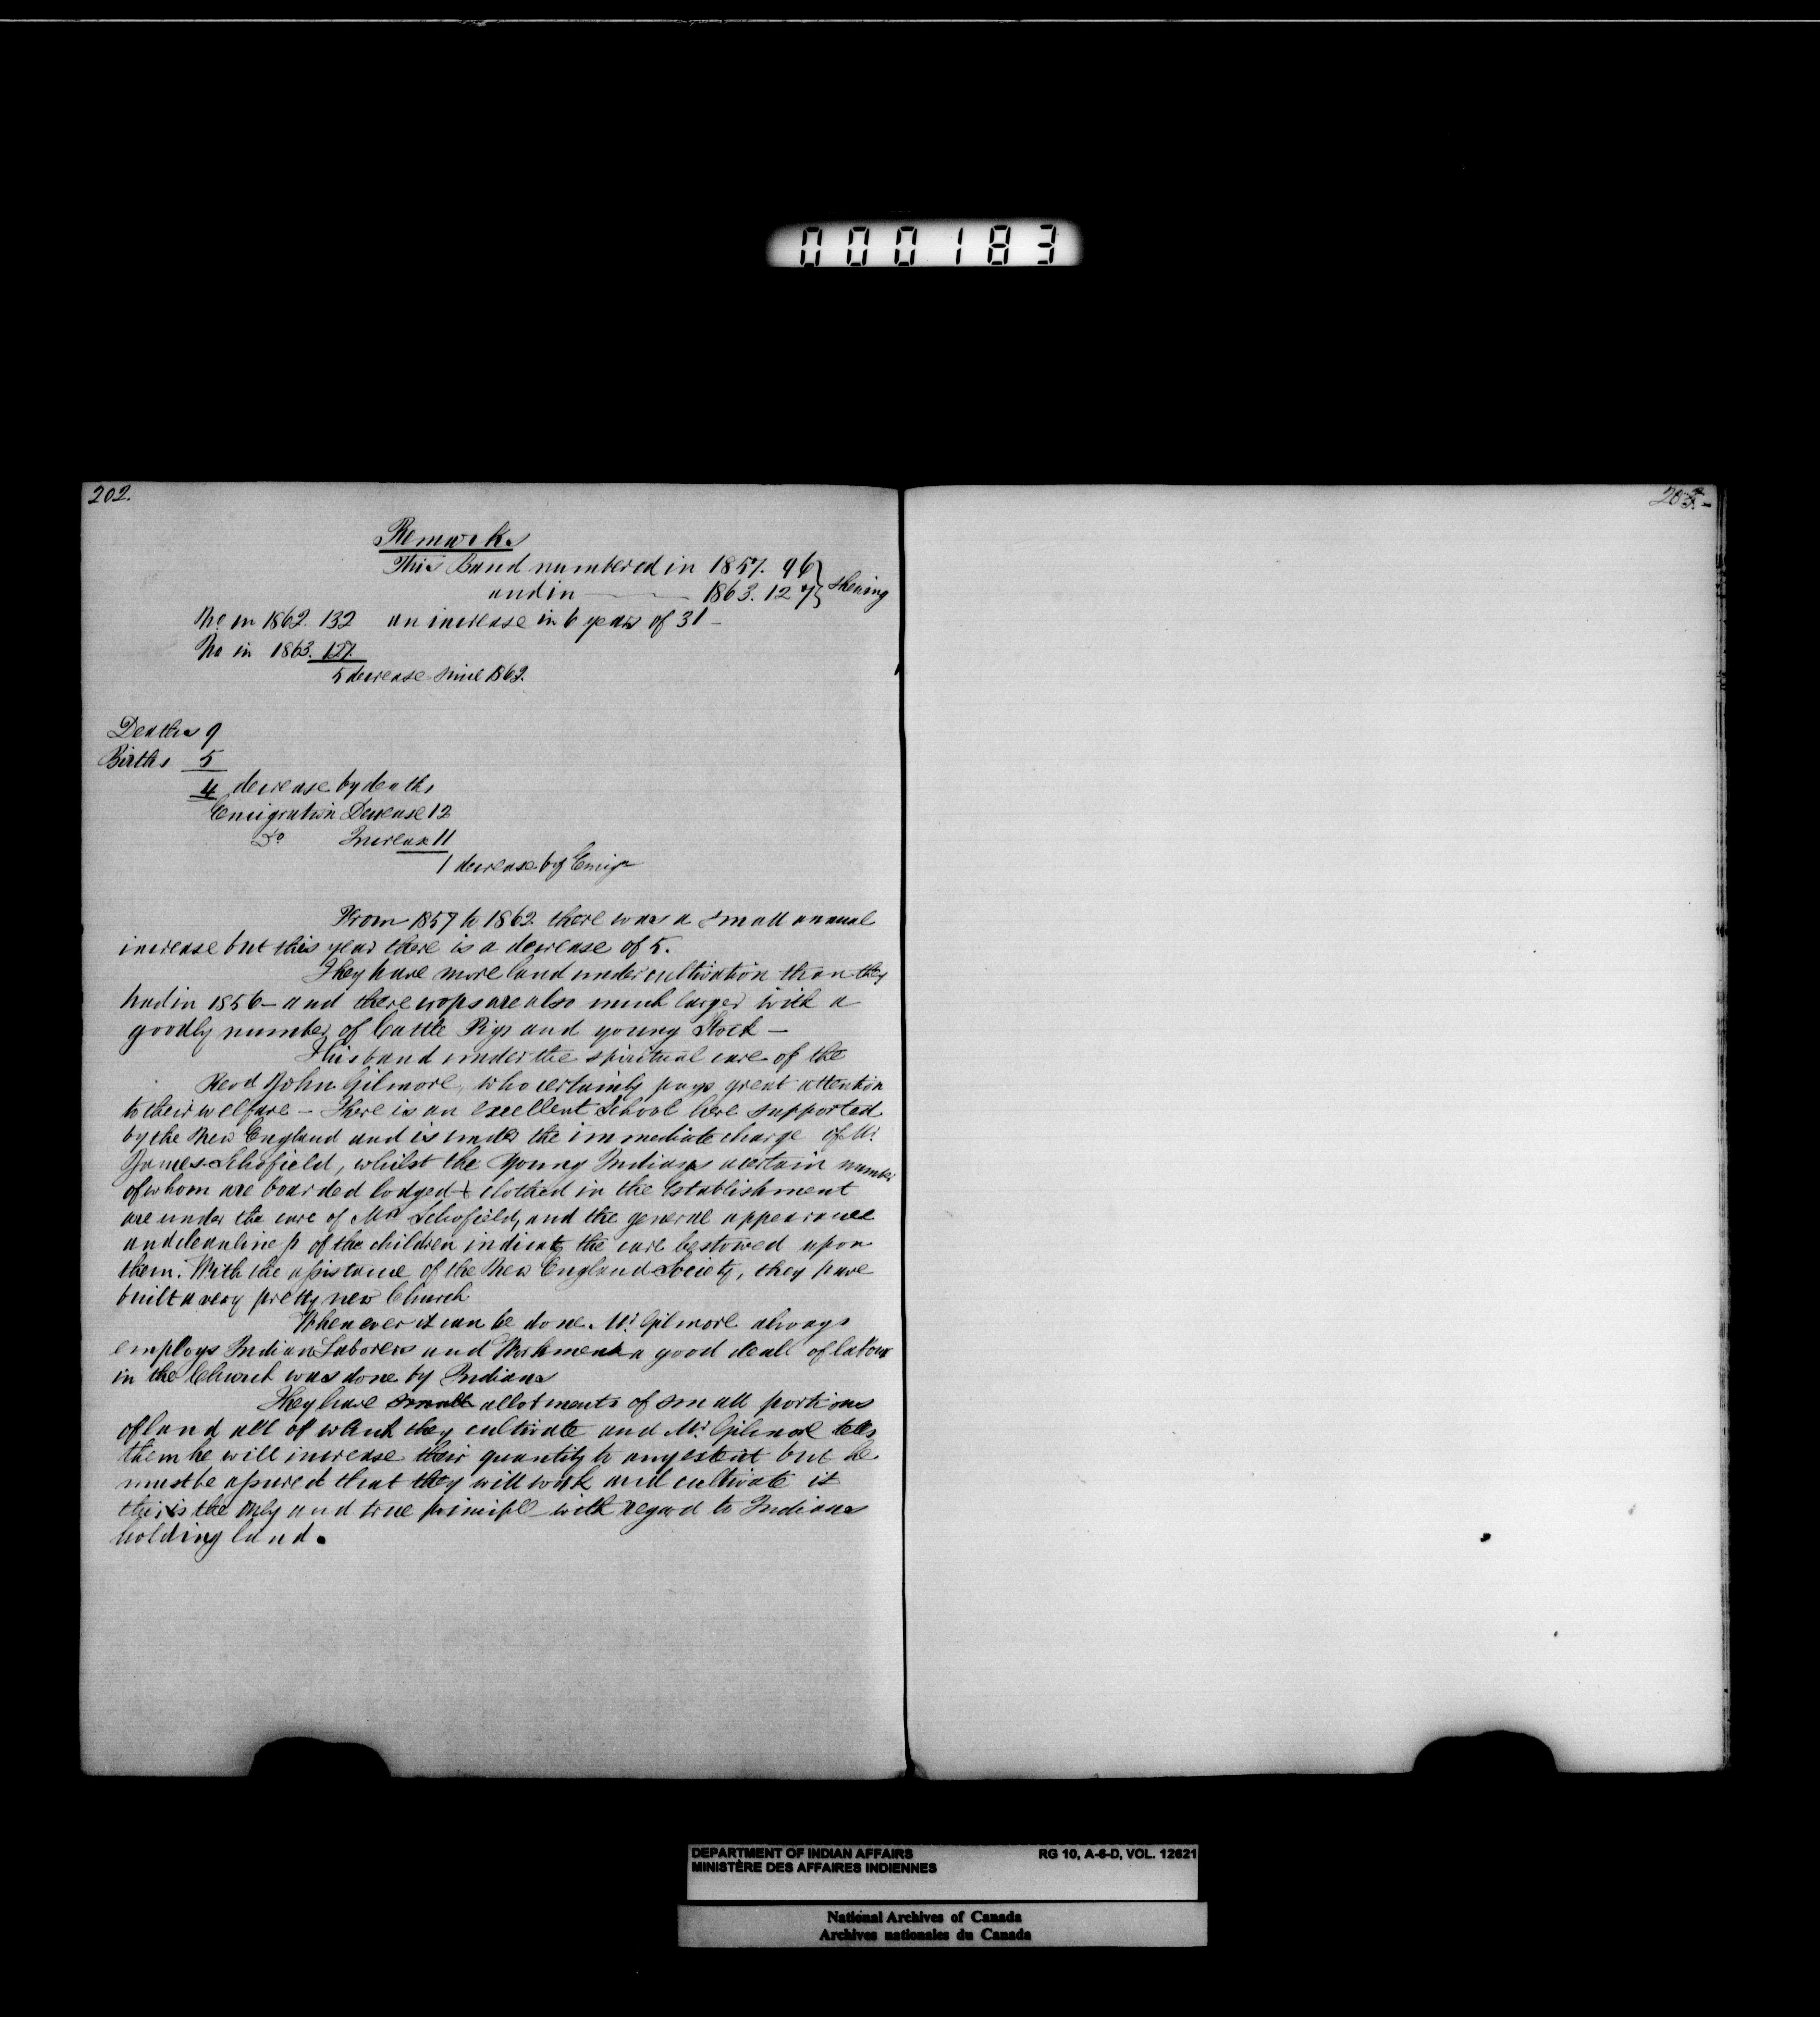 000183
202.
Remarks
This Band numbered in 1857. 96 } shewing
and in ——— 1863. 127
No. in 1862. 132 an increase in 6 years of 31 –
No in 1863. 127.
5 decrease since 1862.
Deaths 9
Births 5
4 decrease by deaths
Emigration Decrease 12
Do Increase 11
1 decrease by Emign
From 1857 to 1862 there was a small annual
increase but this year there is a decrease of 5.
They have more land under cultivation than they
had in 1856 – and there crops are also much larger with a
goodly number of Cattle Pigs and young Stock –
This band under the spiritual care of the
Revd John Gilmore, who certainly pays great attention
to their welfare – There is an excellent School here supported
by the New England and is under the immediate charge of Mr.
James Schofield, whilst the young Indians a certain number
of whom are boarded lodged & clothed in the Establishment
are under the care of Mrs Schofield, and the general appearance
and cleanliness of the children indicate the care bestowed upon
them. With the assistance of the New England Society, they have
built a very pretty new Church
Whenever it can be done. Mr. Gilmore always
employs Indian Laborers and Workmen a good deal of labour
in the Church was done by Indians
They have small allotments of small portions
of land all of which they cultivate and Mr. Gilmore tells
them he will increase their quantity to any extent but he
must be assured that they will work and cultivate it
this is the only and true principle with regard to Indians
holding land.
203. –
DEPARTMENT OF INDIAN AFFAIRS RG 10, A-6-D, VOL. 12621
MINISTÈRE DES AFFAIRES INDIENNES
National Archives of Canada
Archives nationales du Canada